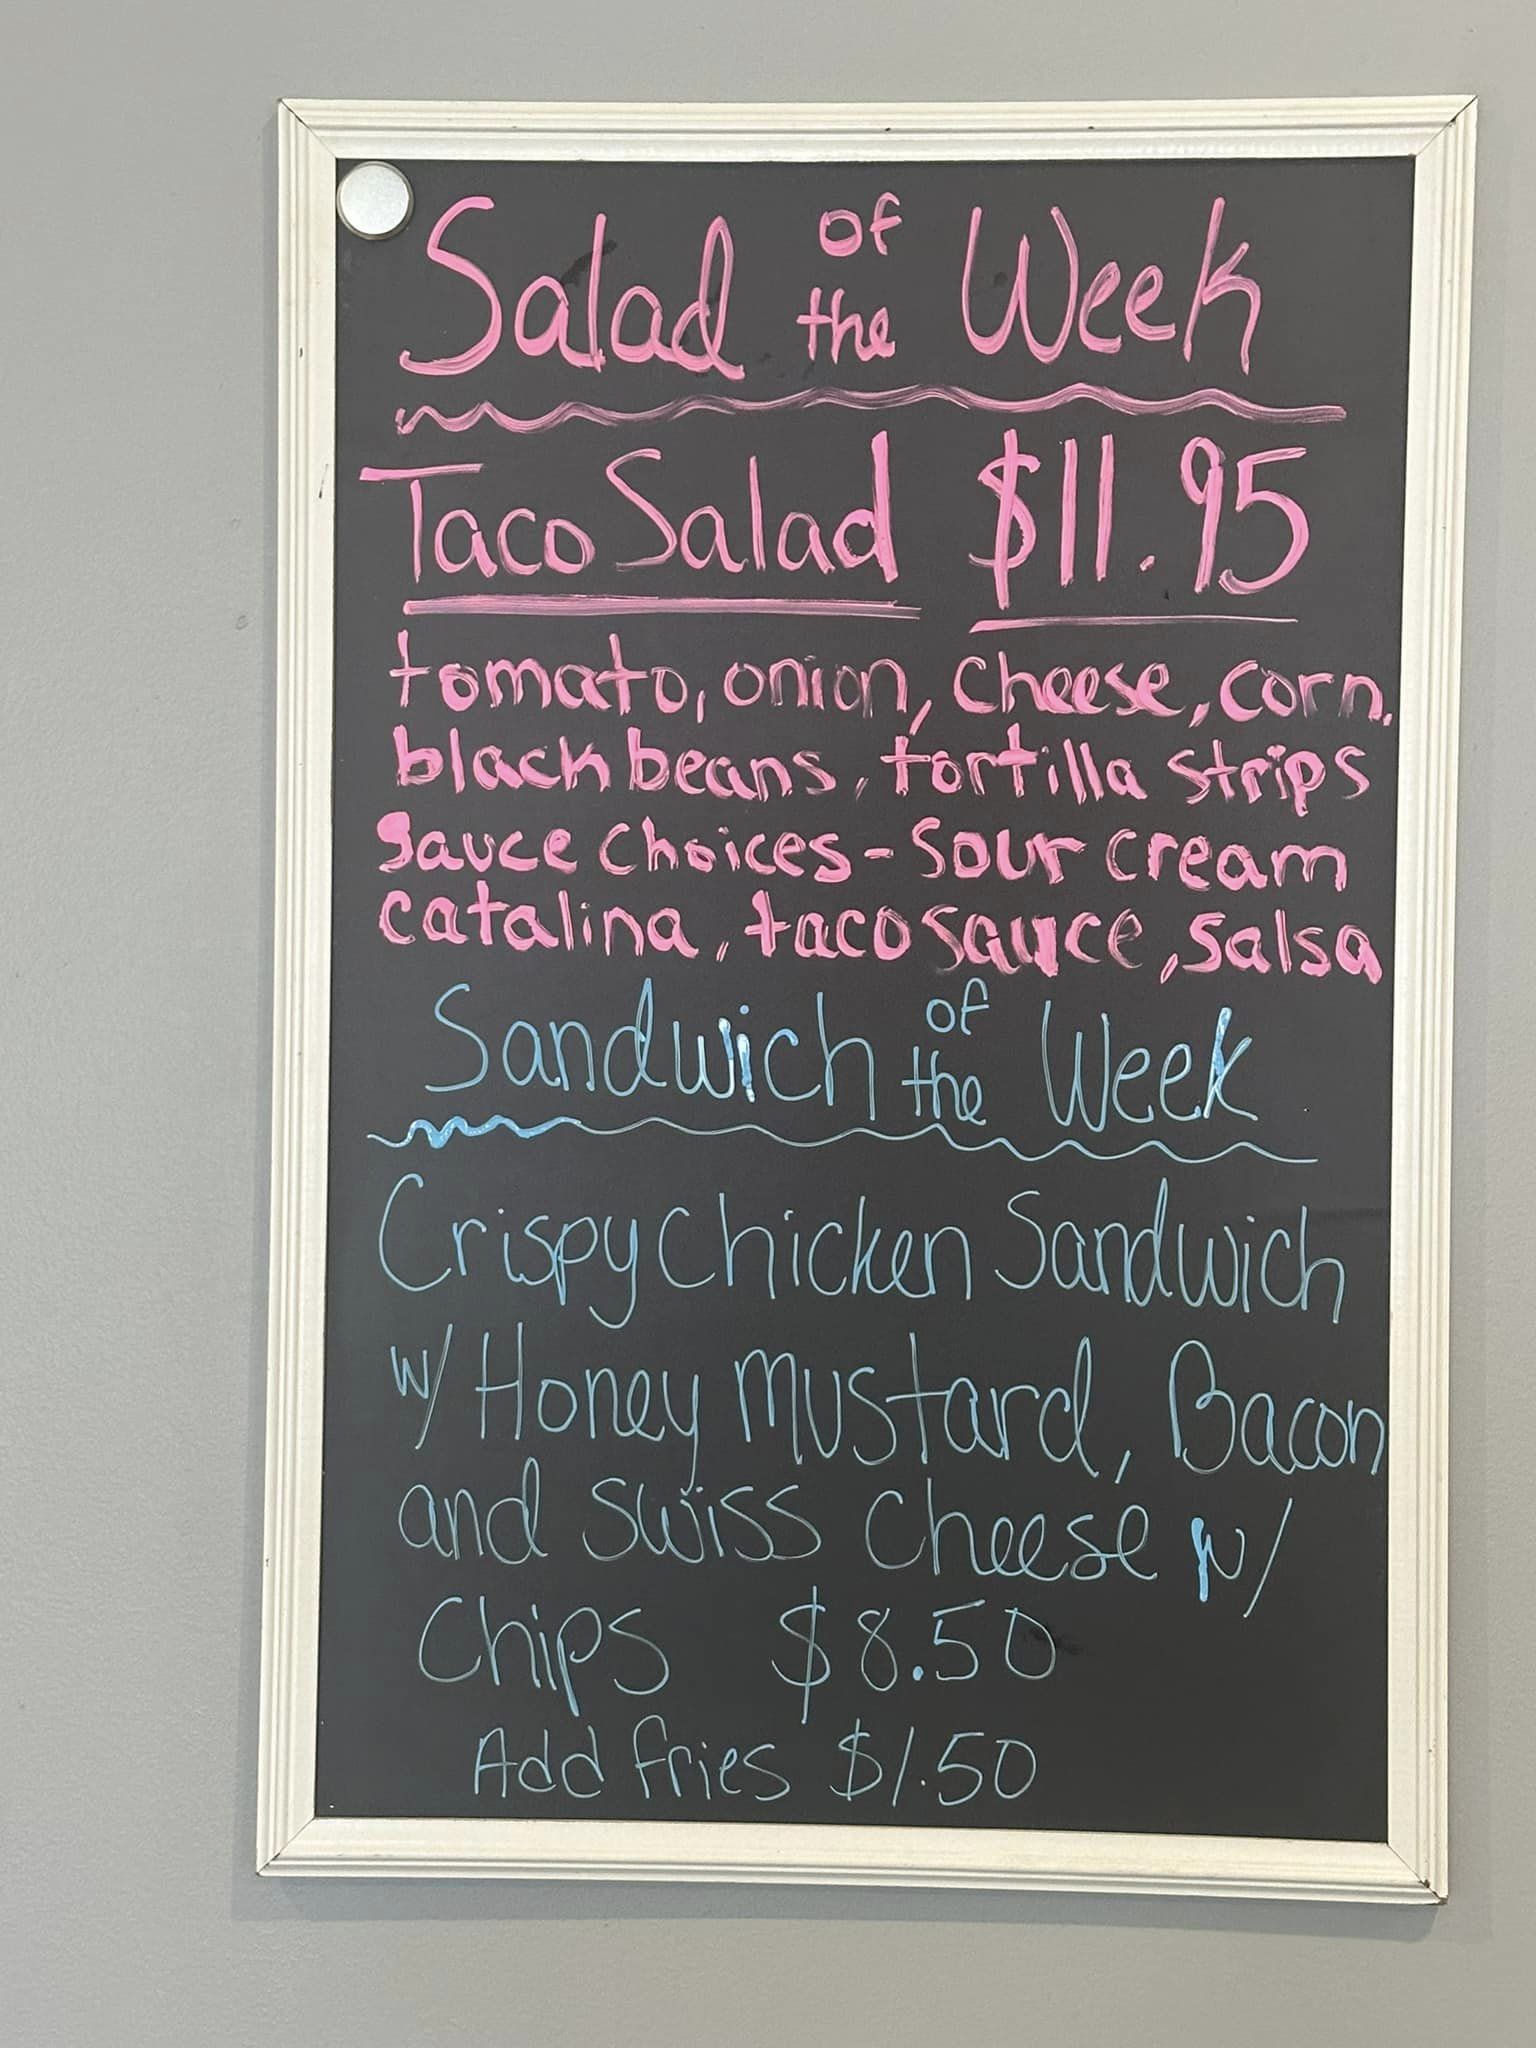 Salad of the Week
Taco Salad $11.95
tomato, onion, cheese, corn,
black beans, tortilla strips
Sauce choices - Sour cream
catalina, taco sauce, salsa
Sandwich of the Week
Crispy Chicken Sandwich
w/ Honey Mustard, Bacon
and Swiss Cheese w/
Chips $8.50
Add fries $1.50